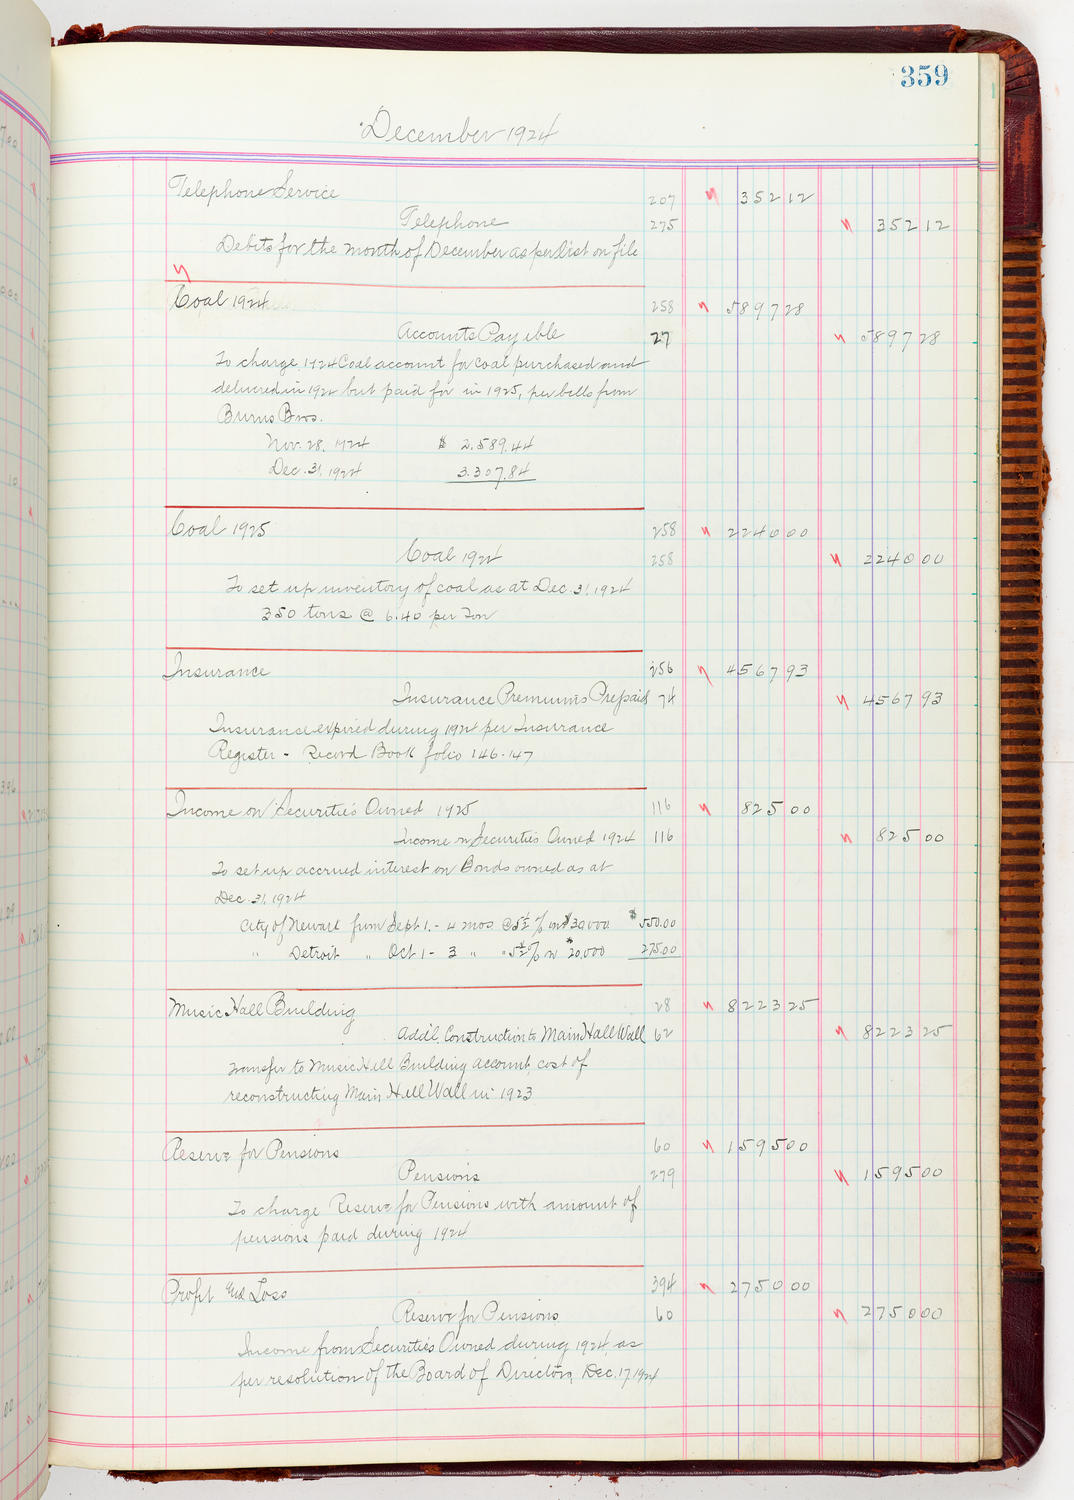 359
December 1924
Telephone Service 207 352 12
Telephone 275 352 12
Debits for the month of December as per list on file
Coal 1924 258 5897 28
Accounts Payable 27 5897 28
To charge 1924 Coal account for coal purchased and
delivered in 1924 but paid for in 1925, per bills from
Burns Bros.
Nov. 28, 1924 $ 2,589.44
Dec. 31, 1924 3,307.84
Coal 1925 258 2240 00
Coal 1924 258 2240 00
To set up inventory of coal as at Dec. 31, 1924
350 tons @ 6.40 per Ton
Insurance 256 4567 93
Insurance Premiums Prepaid 74 4567 93
Insurance expired during 1924 per Insurance
Register - Record Book folio 146-147
Income on Securities Owned 1925 116 825 00
Income on Securities Owned 1924 116 825 00
To set up accrued interest on Bonds owned as at
Dec. 31, 1924
City of Newark from Sept 1. - 4 mos @ 5½% on $30,000 $550.00
" Detroit " Oct 1 - 3 " " 5½% on $20,000 275.00
Music Hall Building 28 8223 25
Add'l Construction to Main Hall Wall 62 8223 25
Transfer to Music Hall Building account, cost of
reconstructing Main Hall Wall in 1923
Reserve for Pensions 60 1595 00
Pensions 279 1595 00
To charge Reserve for Pensions with amount of
pensions paid during 1924
Profit and Loss 394 2750 00
Reserve for Pensions 60 2750 00
Income from Securities Owned during 1924, as
per resolution of the Board of Directors, Dec. 17, 1924